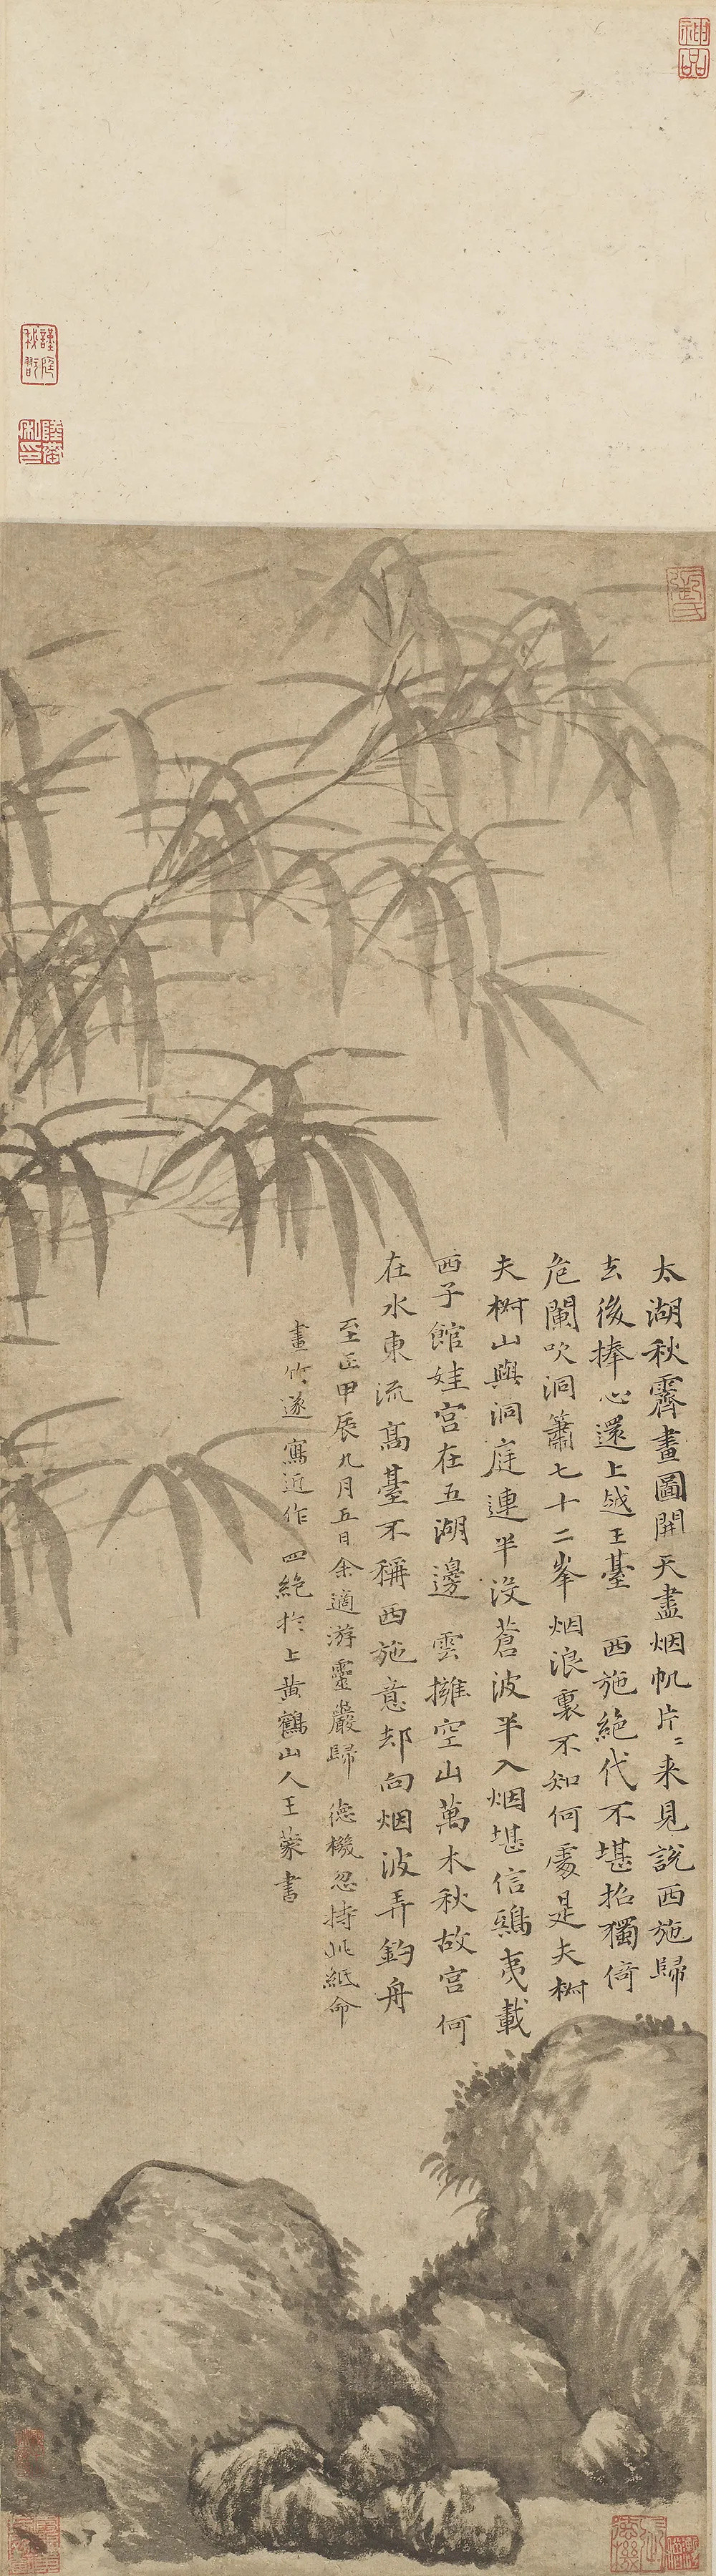 神品
太湖秋霽畫圖開天盡烟帆片〻来見說西施歸
去後捧心還上越王臺　西施絕代不堪招獨倚
危闌吹洞簫七十二峯烟浪裏不知何處是夫樹
夫樹山與洞庭連半沒蒼波半入烟堪信鴟夷載
西子館娃宮在五湖邊　雲擁空山萬木秋故宮何
在水東流高臺不稱西施意却向烟波弄釣舟
至正甲辰九月五日余適游靈巖歸　德機忽持此紙命
畫竹遂寫近作　四絶於上黃鶴山人王蒙書